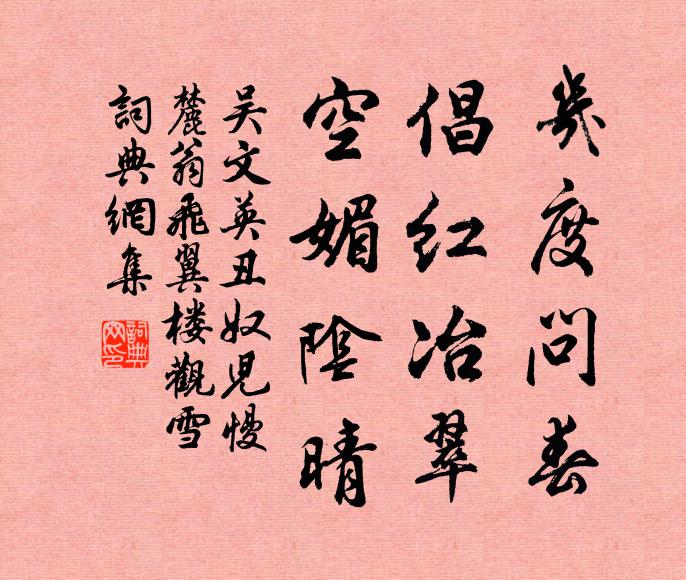 幾度問春
倡红冶翠
空媚陰晴
吴文英丑奴兒慢
麓翁飛翼楼觀雪
詞典網集
詞典網印